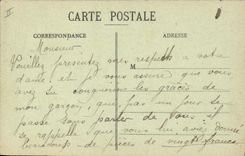 II
CARTE POSTALE
CORRESPONDANCE
ADRESSE
Monsieur
Veuillez presentez mes respects a votre
M
dame, et je vous assure que vous
avez su conquerir les grâces de
mon garçon, que pas un jour se
passe sans parler de vous et
se rappelle que vous lui avez donné
de pieces de vingt francs